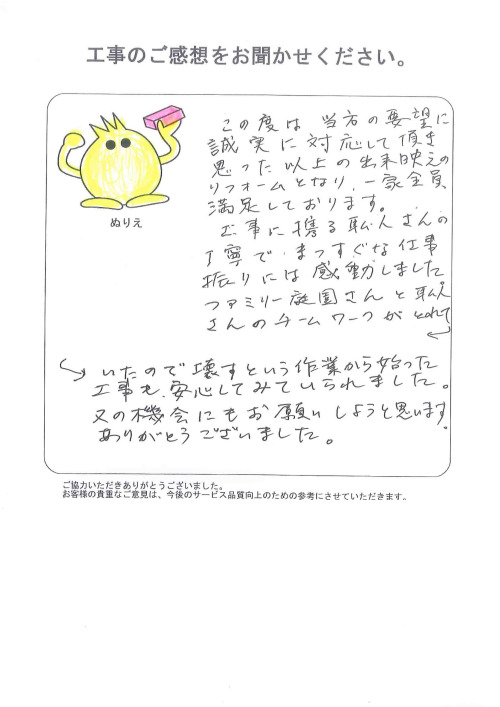 工事のご感想をお聞かせください。
この度は 当方の要望に
誠実に対応して頂き
思った以上の出来映えの
リフォームとなり、一家全員、
満足しております。
工事に携る職人さんの
丁寧で まっすぐな仕事
振りには感動しました。
ファミリー庭園さんと職人
さんのチームワークがとれて
ぬりえ
いたので壊すという作業から始った
工事も、安心してみていられました。
又の機会にもお願いしようと思います。
ありがとうございました。
ご協力いただきありがとうございました。
お客様の貴重なご意見は、今後のサービス品質向上のための参考にさせていただきます。